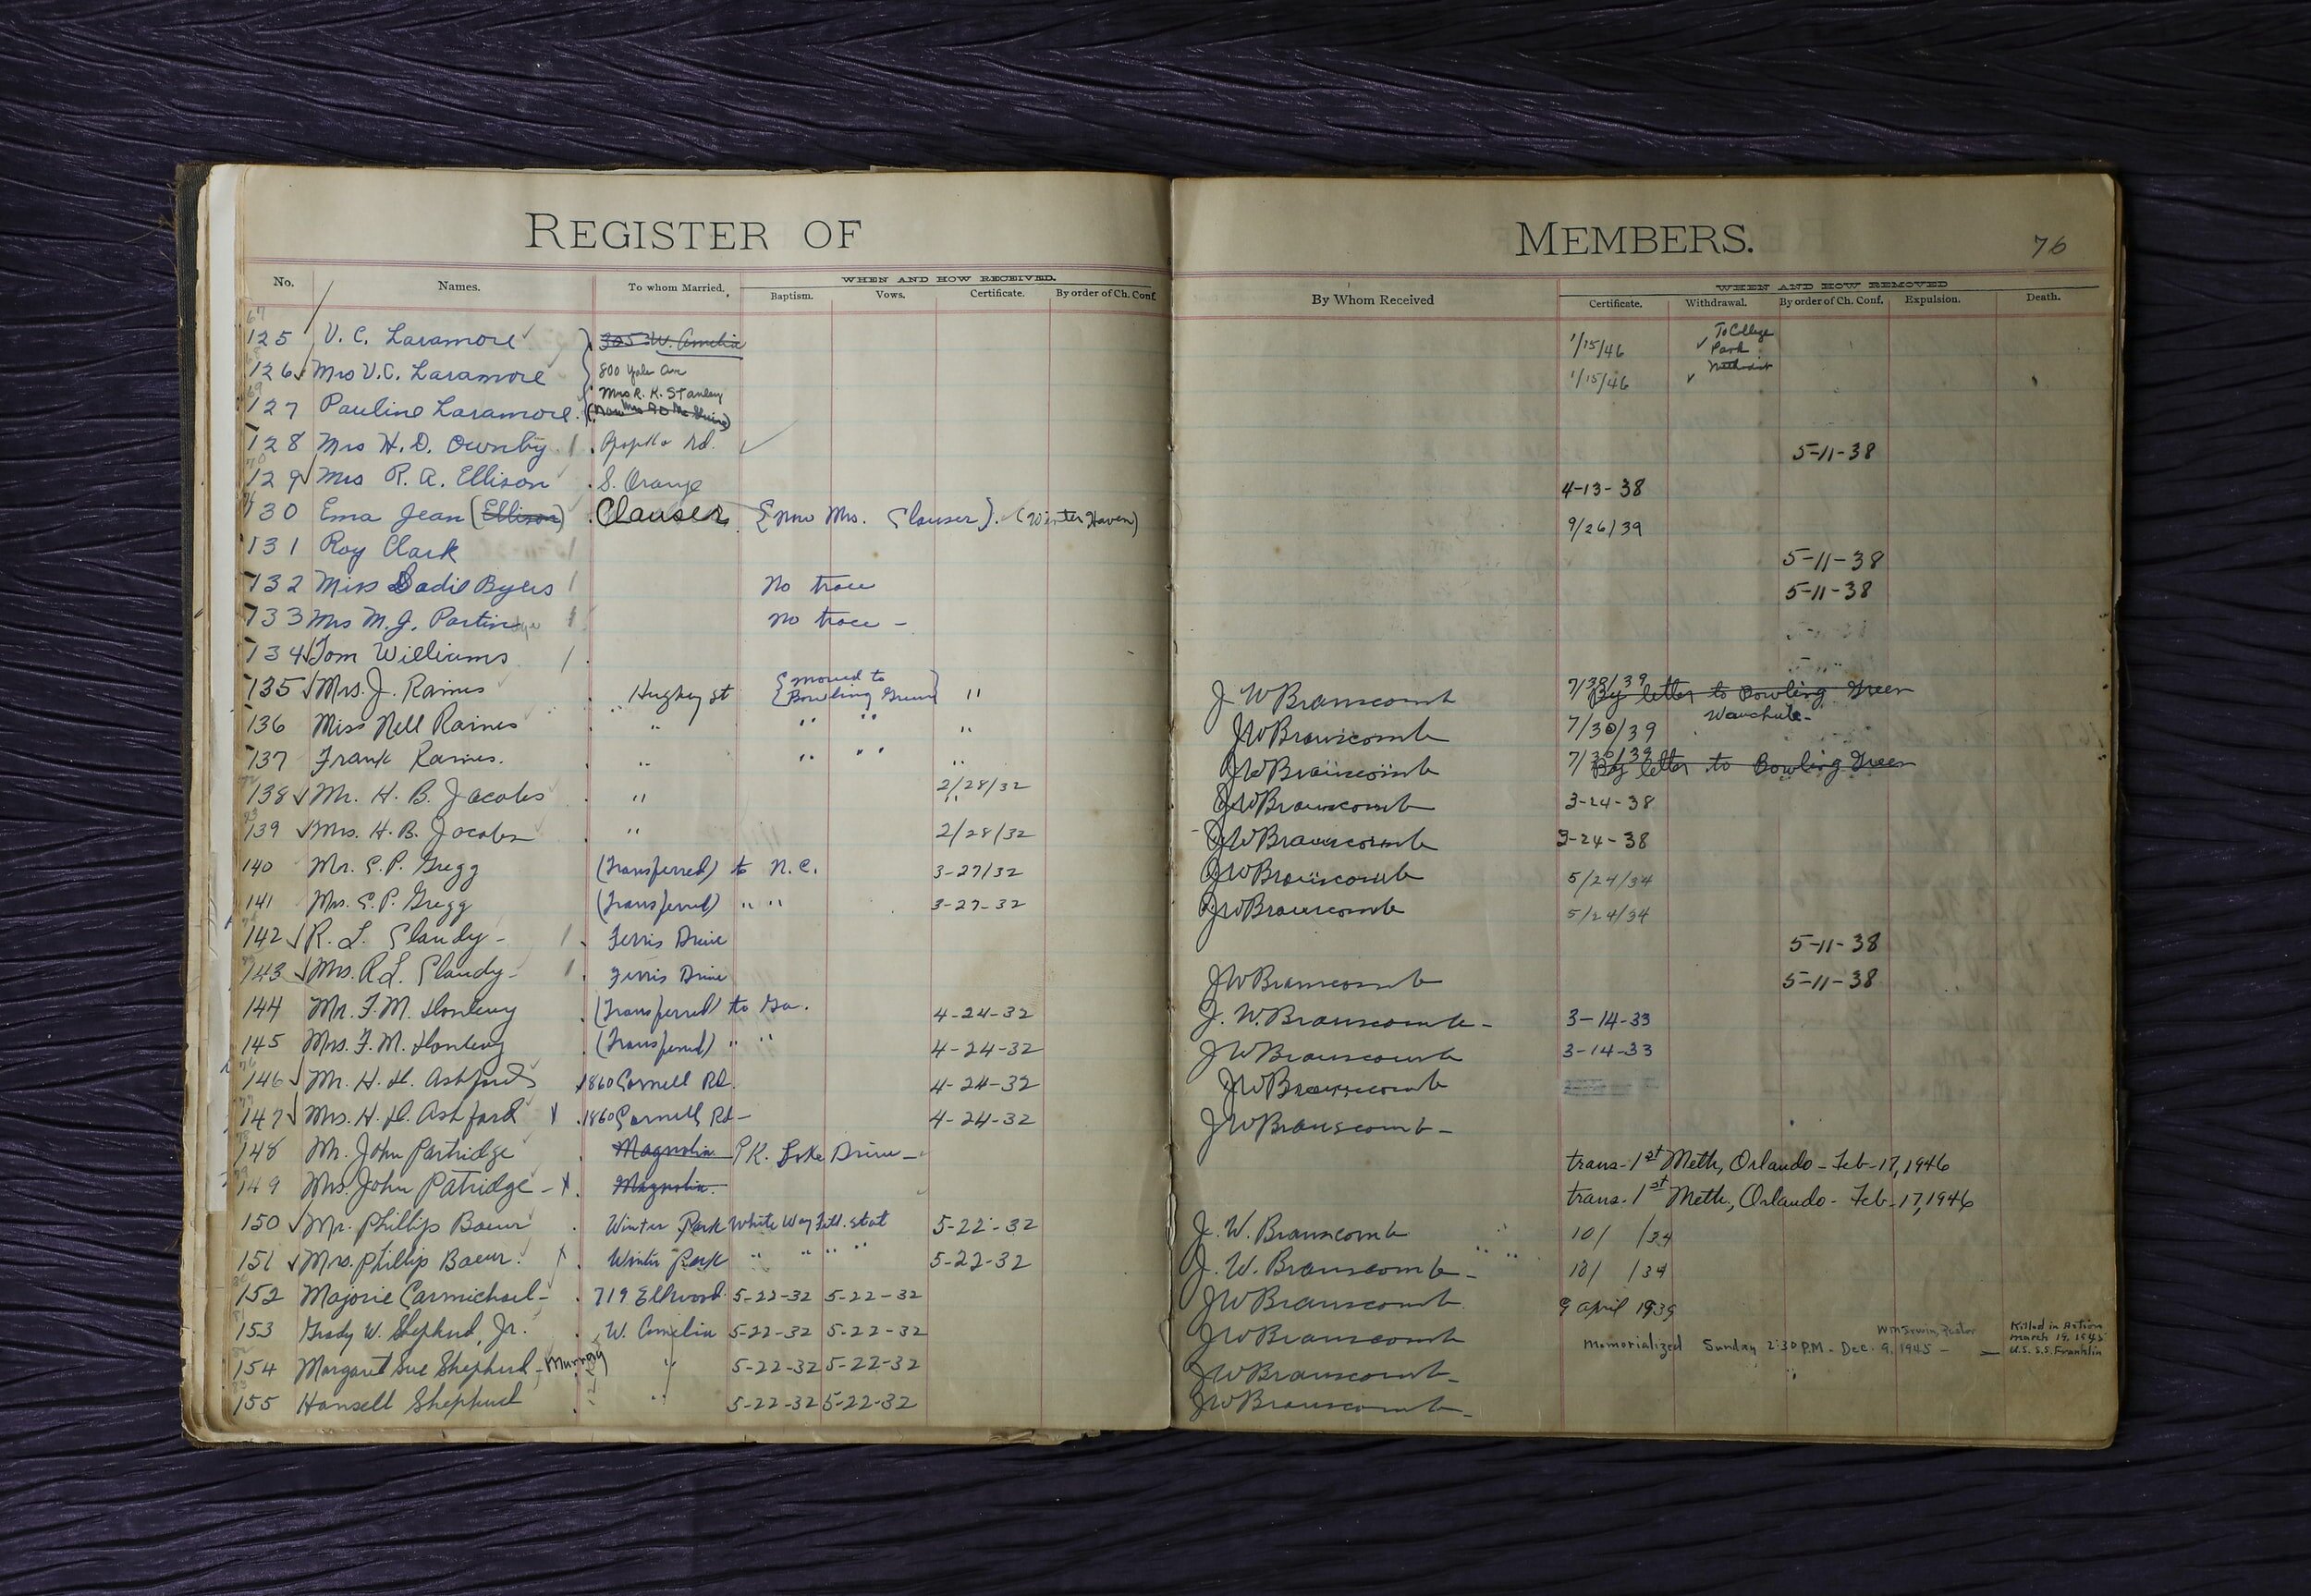 REGISTER OF MEMBERS. 76
No. Names. To whom Married. WHEN AND HOW RECEIVED. By Whom Received WHEN AND HOW REMOVED
Baptism. Vows. Certificate. By order of Ch. Conf. Certificate. Withdrawal. By order of Ch. Conf. Expulsion. Death.
67
125 V. C. Laramore 305 W. Amelia 1/15/46 ✓ To College Park Methodist
126 ✓ Mrs V. C. Laramore 800 Yale Ave 1/15/46 ✓
127 Pauline Laramore. Mrs R. K. Stanley
128 Mrs H. D. Ownby Apopka Rd. ✓ 5-11-38
129 ✓ Mrs R. A. Ellison S. Orange 4-13-38
130 Ema Jean (Ellison) Clauser {now Mrs. Clauser}. (Winter Haven) 9/26/39
131 Roy Clark 5-11-38
132 Miss Sadie Byers No trace 5-11-38
133 Mrs M. J. Partin No trace -
134 ✓ Tom Williams
135 ✓ Mrs. J. Raines Hughey St {moved to Bowling Green} " J W Branscomb 7/30/39 By letter to Bowling Green
136 Miss Nell Raines " " " " J W Branscomb 7/30/39 Wauchula-
137 Frank Raines. " " " " J W Branscomb 7/30/39 By letter to Bowling Green
138 ✓ Mr. H. B. Jacobs " 2/28/32 J W Branscomb 3-24-38
139 ✓ Mrs. H. B. Jacobs " 2/28/32 J W Branscomb 3-24-38
140 Mr. E. P. Gregg (Transferred) to N.C. 3-27/32 J W Branscomb 5/24/34
141 Mrs. E. P. Gregg (Transferred) " " 3-27-32 J W Branscomb 5/24/34
142 ✓ R. L. Clandy - Ferris Drive 5-11-38
143 ✓ Mrs. R L. Clandy - Ferris Drive J W Branscomb 5-11-38
144 Mr. F. M. (Transferred) to Ga. 4-24-32 J. W. Branscomb - 3-14-33
145 Mrs. F. M. (Transferred) " " 4-24-32 J W Branscomb 3-14-33
146 ✓ Mr. H. H. Ashford 1860 Cornell Rd. 4-24-32 J W Branscomb
147 ✓ Mrs. H. H. Ashford x 1860 Cornell Rd - 4-24-32 J W Branscomb -
148 Mr. John Partridge Magnolia PK. Lake Drive - trans- 1st Meth, Orlando - Feb-17, 1946
149 Mrs. John Patridge - x Magnolia. trans- 1st Meth., Orlando - Feb-17, 1946
150 ✓ Mr. Phillip Baeur Winter Park White Way Fill. Stat 5-22-32 J. W. Branscomb 10/ /34
151 ✓ Mrs. Phillip Baeur. x Winter Park " " " " 5-22-32 J. W. Branscomb - 10/ /34
152 Majorie Carmichael - 719 Ellwood 5-22-32 5-22-32 J W Branscomb 9 April 1939
153 Grady W. Shepherd, Jr. W. Amelia 5-22-32 5-22-32 J W Branscomb Memorialized Sunday 2:30 P.M. - Dec. 9, 1945 - Wm Irwin, Pastor Killed in Action March 19, 1945 U.S.S.S. Franklin
154 Margaret Sue Shepherd - Murray " 5-22-32 5-22-32 J W Branscomb -
155 Hansell Shepherd " 5-22-32 5-22-32 J W Branscomb -